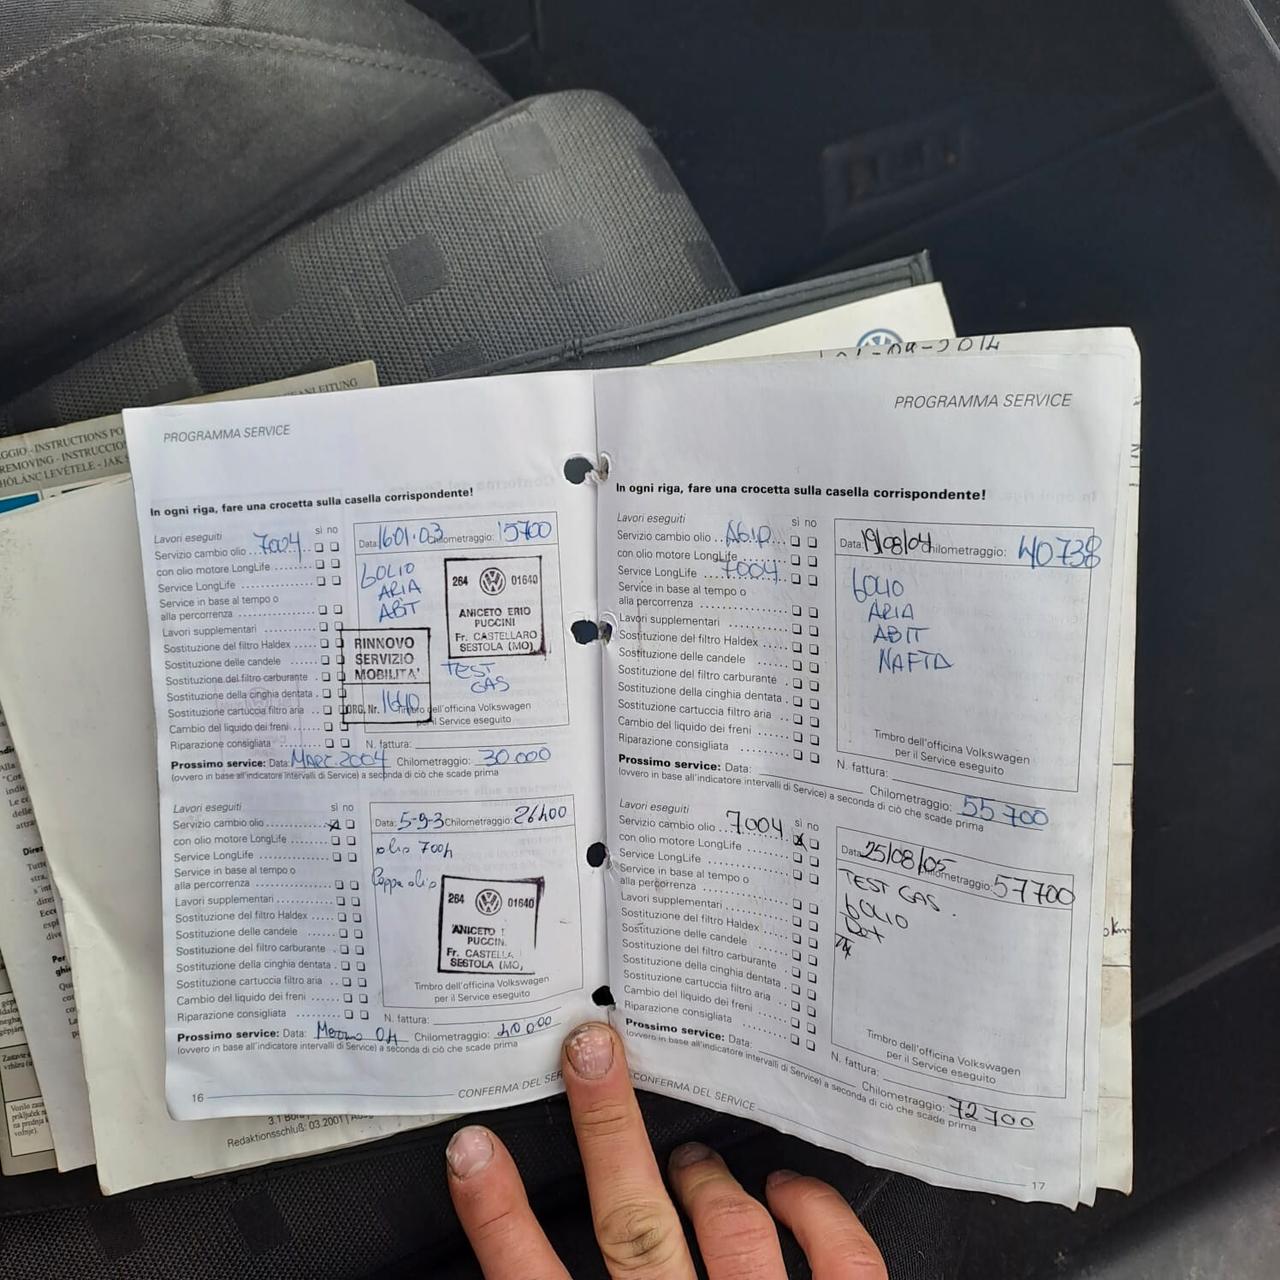 01-09-2014
PROGRAMMA SERVICE
In ogni riga, fare una crocetta sulla casella corrispondente!
Lavori eseguiti
sì no
Servizio cambio olio 7004
con olio motore LongLife
Service LongLife
Service in base al tempo o
alla percorrenza
Lavori supplementari
Sostituzione del filtro Haldex
Sostituzione delle candele
Sostituzione del filtro carburante
Sostituzione della cinghia dentata
Sostituzione cartuccia filtro aria
Cambio del liquido dei freni
Riparazione consigliata
Data: 1601.03 Chilometraggio: 15700
FOLIO
ARIA
ABIT
264 01640
ANICETO ERIO
PUCCINI
Fr. CASTELLARO
SESTOLA (MO)
RINNOVO
SERVIZIO
MOBILITA'
ORG. Nr. 1640
TEST
GAS
Timbro dell'officina Volkswagen
per il Service eseguito
N. fattura:
Prossimo service: Data: MARZ.2004 Chilometraggio: 30.000
(ovvero in base all'indicatore intervalli di Service) a seconda di ciò che scade prima
Lavori eseguiti
sì no
Servizio cambio olio
con olio motore LongLife
Service LongLife
Service in base al tempo o
alla percorrenza
Lavori supplementari
Sostituzione del filtro Haldex
Sostituzione delle candele
Sostituzione del filtro carburante
Sostituzione della cinghia dentata
Sostituzione cartuccia filtro aria
Cambio del liquido dei freni
Riparazione consigliata
Data: 5-9-3 Chilometraggio: 26400
olio 7004
Coppa olio
264 01640
ANICETO
PUCCIN
Fr. CASTELLA
SESTOLA (MO)
Timbro dell'officina Volkswagen
per il Service eseguito
N. fattura:
Prossimo service: Data: Marzo 04 Chilometraggio: 40000
(ovvero in base all'indicatore intervalli di Service) a seconda di ciò che scade prima
16
CONFERMA DEL SER
PROGRAMMA SERVICE
In ogni riga, fare una crocetta sulla casella corrispondente!
Lavori eseguiti
sì no
Servizio cambio olio AGIP
con olio motore LongLife
Service LongLife 7004
Service in base al tempo o
alla percorrenza
Lavori supplementari
Sostituzione del filtro Haldex
Sostituzione delle candele
Sostituzione del filtro carburante
Sostituzione della cinghia dentata
Sostituzione cartuccia filtro aria
Cambio del liquido dei freni
Riparazione consigliata
Data: 19/08/04 Chilometraggio: 40738
FOLIO
ARIA
ABIT
NAFTA
Timbro dell'officina Volkswagen
per il Service eseguito
N. fattura:
Prossimo service: Data: Chilometraggio: 55700
(ovvero in base all'indicatore intervalli di Service) a seconda di ciò che scade prima
Lavori eseguiti
sì no
Servizio cambio olio 7004
con olio motore LongLife
Service LongLife
Service in base al tempo o
alla percorrenza
Lavori supplementari
Sostituzione del filtro Haldex
Sostituzione delle candele
Sostituzione del filtro carburante
Sostituzione della cinghia dentata
Sostituzione cartuccia filtro aria
Cambio del liquido dei freni
Riparazione consigliata
Data: 25/08/05 Chilometraggio: 57700
TEST GAS.
FOLIO
Timbro dell'officina Volkswagen
per il Service eseguito
N. fattura:
Prossimo service: Data: Chilometraggio: 72700
(ovvero in base all'indicatore intervalli di Service) a seconda di ciò che scade prima
CONFERMA DEL SERVICE
17
Redaktionsschluß: 03.2001